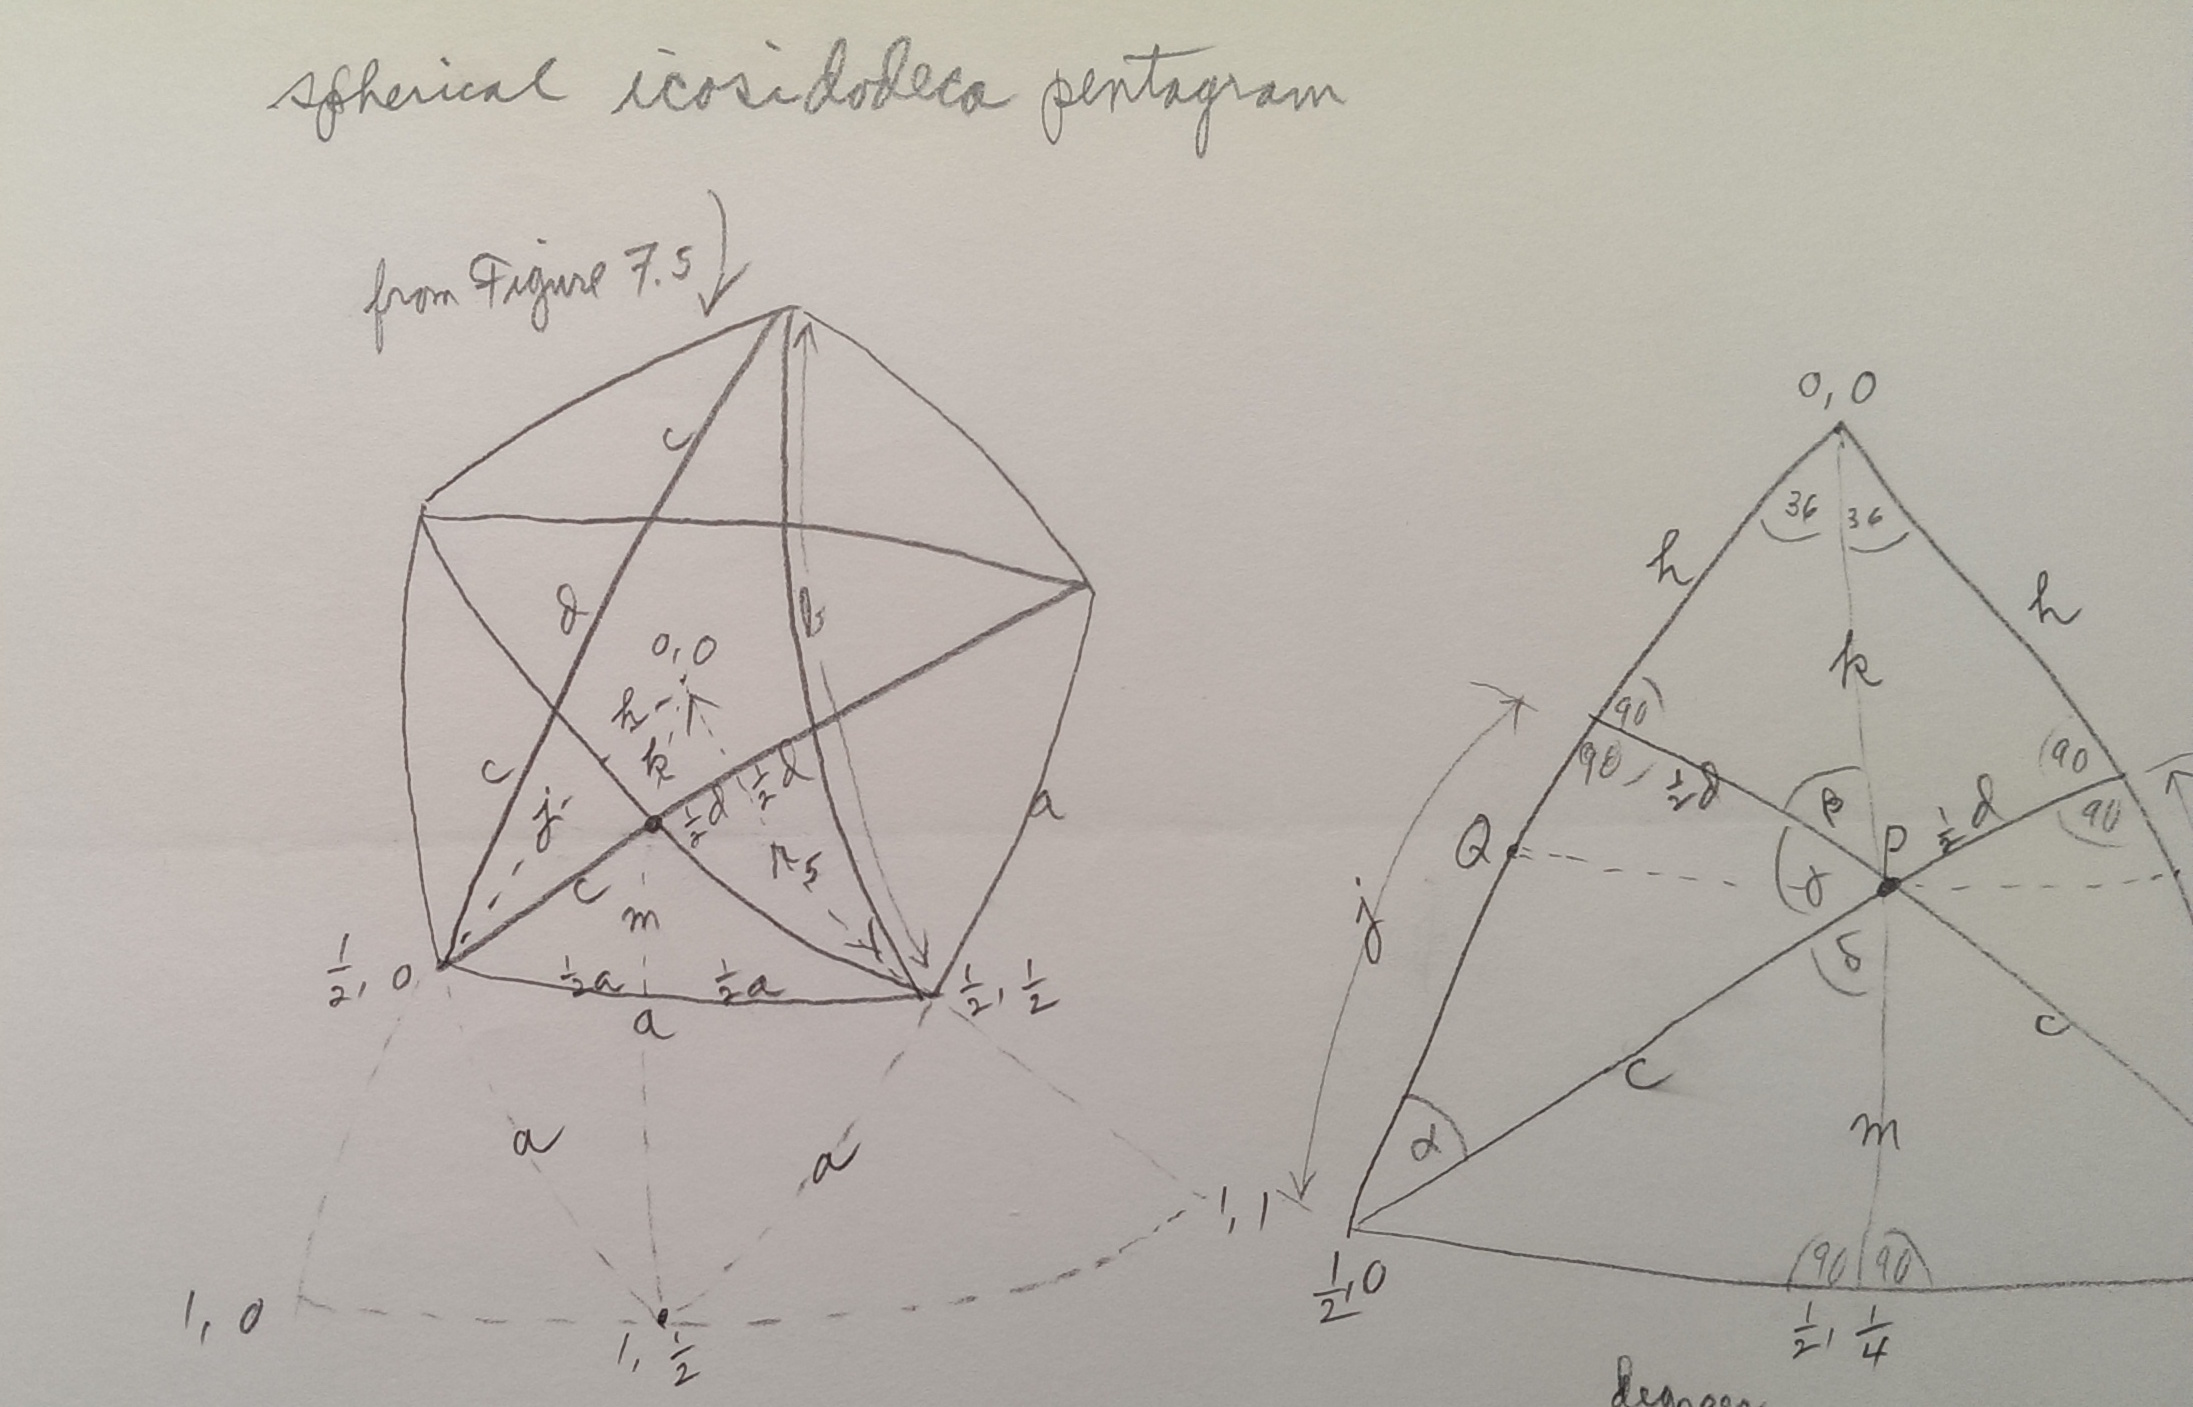 spherical icosidodeca pentagram
from Figure 7.5
c
d
b
0,0
h
k
c
j
½d
½d
a
r₅
c
m
½, 0
½a
½a
½, ½
a
a
a
1, 0
1, ½
1, 1
0, 0
36
36
h
h
k
90
90
½d
90
90
β
½d
P
Q
γ
j
δ
c
c
α
m
90
90
½, 0
½, ¼
degrees